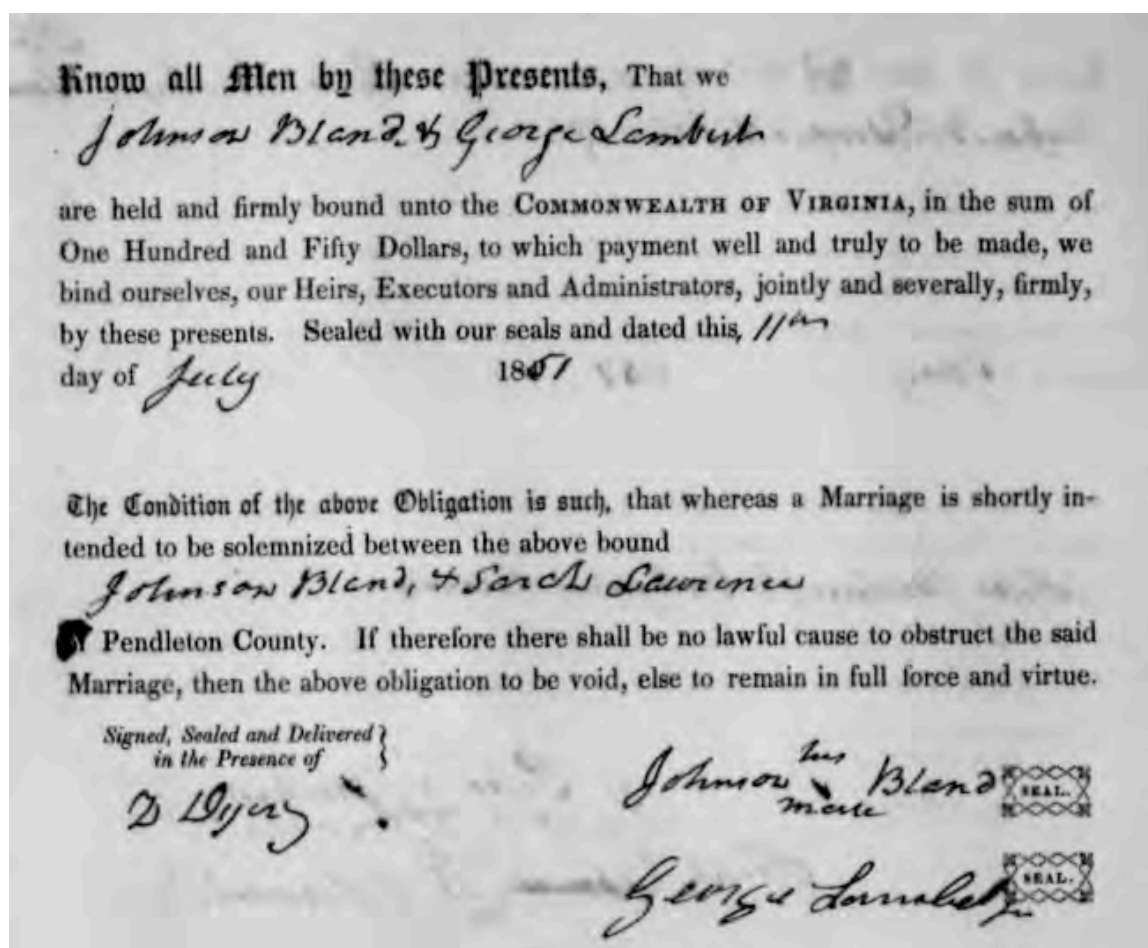 Know all Men by these Presents, That we
Johnson Bland, & George Lambert
are held and firmly bound unto the COMMONWEALTH OF VIRGINIA, in the sum of
One Hundred and Fifty Dollars, to which payment well and truly to be made, we
bind ourselves, our Heirs, Executors and Administrators, jointly and severally, firmly,
by these presents. Sealed with our seals and dated this, 11th
day of July 1851
The Condition of the above Obligation is such, that whereas a Marriage is shortly in-
tended to be solemnized between the above bound
Johnson Bland, & Sarah Lawrence
Pendleton County. If therefore there shall be no lawful cause to obstruct the said
Marriage, then the above obligation to be void, else to remain in full force and virtue.
Signed, Sealed and Delivered
in the Presence of
his
Johnson Bland SEAL.
mark
D Dyer
George SEAL.